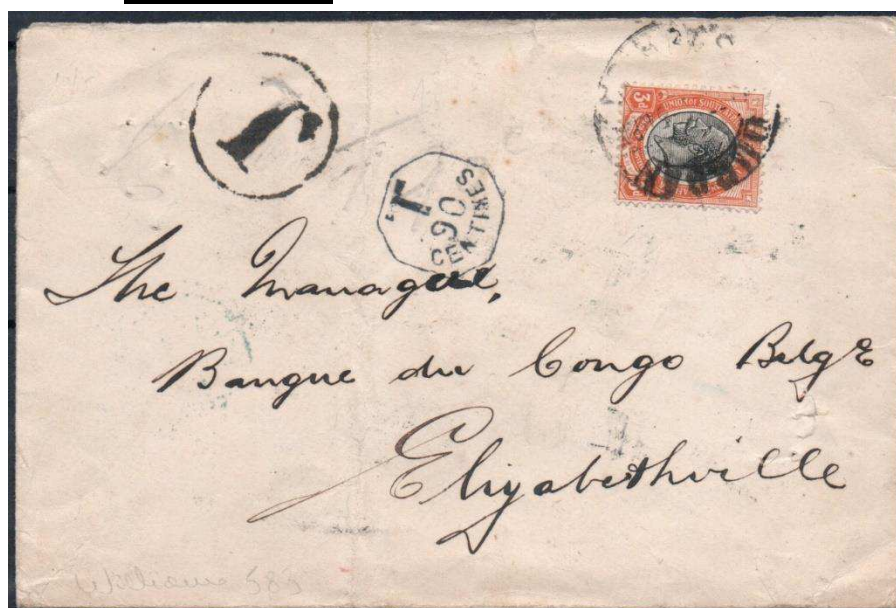 T
T
90
CENTIMES
3d
UNION OF SOUTH AFRICA
The Manager,
Banque du Congo Belge
Elizabethville